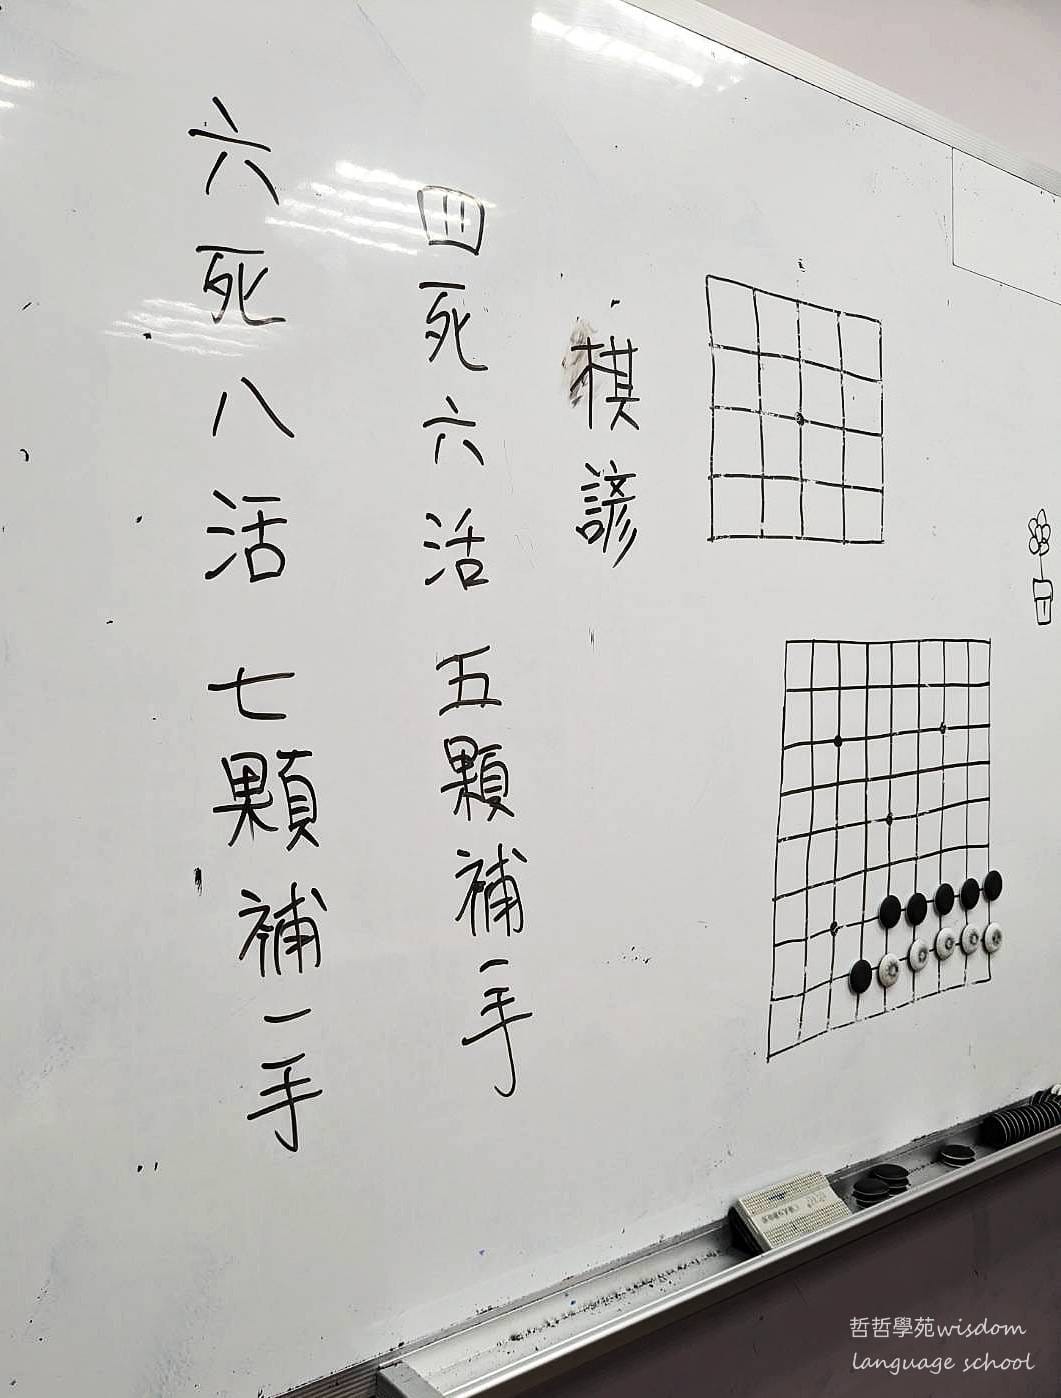 棋諺
四死六活 五顆補一手
六死八活 七顆補一手
哲哲學苑wisdom
language school